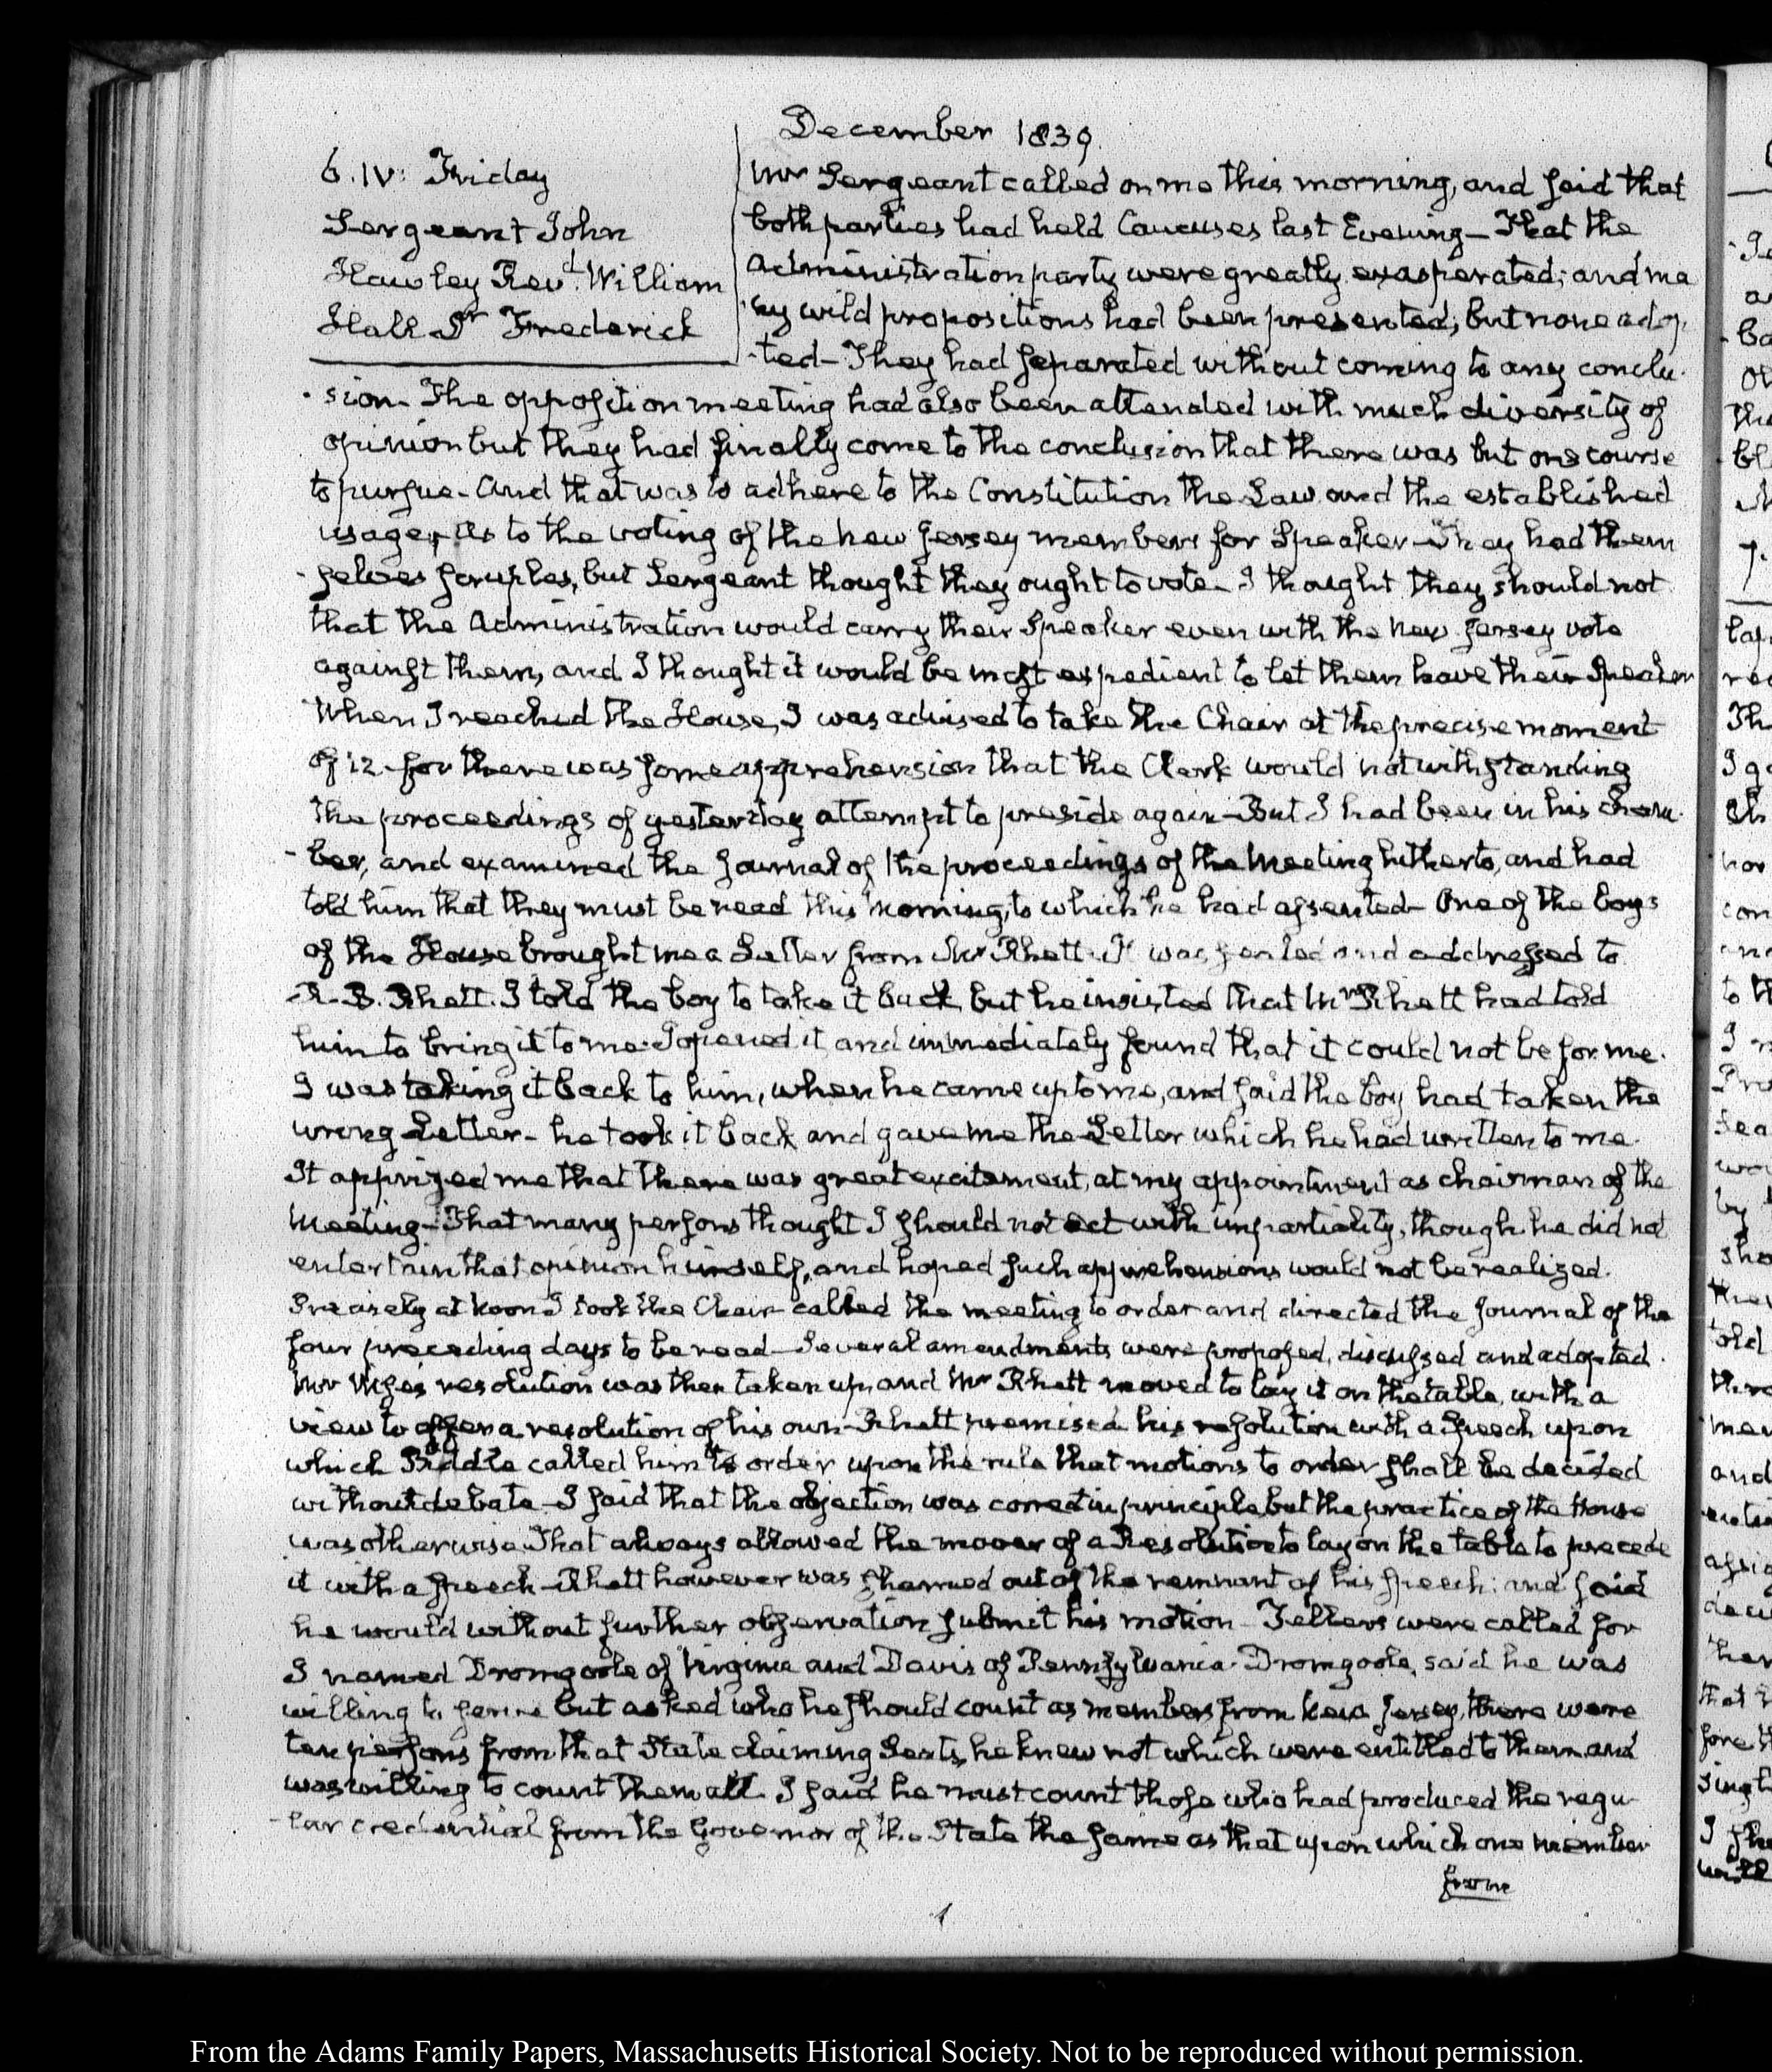 December 1839.
6. IV: Friday
Sergeant John
Hawley Revd. William
Hall Dr Frederick
Mr Sergeant called on me this morning, and said that
both parties had held Caucuses last Evening— That the
administration party were greatly exasperated; and ma
ny wild propositions had been presented; but none adop-
-ted— They had separated without coming to any conclu-
-sion— The opposition meeting had also been attended with much diversity of
opinion but they had finally come to the conclusion that there was but one course
to pursue— and that was to adhere to the Constitution the Law and the established
usage, As to the voting of the New Jersey members for Speaker— They had them
-selves scruples, but Sergeant thought they ought to vote— I thought they should not
that the Administration would carry their Speaker even with the New Jersey vote
against them, and I thought it would be most expedient to let them have their Speaker
When I reached the House, I was advised to take the Chair at the precise moment
of 12— for there was some apprehension that the Clerk would notwithstanding
the proceedings of yesterday attempt to preside again— But I had been in his cham-
-ber, and examined the Journal of the proceedings of the Meeting hitherto, and had
told him that they must be read this morning, to which he had assented— One of the boys
of the House brought me a Letter from Mr Rhett. It was sealed and addressed to
R. B. Rhett. I told the boy to take it back, but he insisted that Mr Rhett had told
him to bring it to me. I opened it, and immediately found that it could not be for me.
I was taking it back to him, when he came up to me, and said the boy had taken the
wrong Letter— he took it back and gave me the Letter which he had written to me.
It apprized me that there was great excitement, at my appointment as chairman of the
Meeting— That many persons thought I should not act with impartiality, though he did not
entertain that opinion himself, and hoped such apprehensions would not be realized.
Precisely at Noon I took the Chair— called the meeting to order and directed the Journal of the
four preceding days to be read— Several amendments were proposed, discussed and adopted.
Mr Wise's resolution was then taken up, and Mr Rhett moved to lay it on the table, with a
view to offer a resolution of his own— Rhett premised his resolution with a Speech upon
which Biddle called him to order upon the rule that motions to order shall be decided
without debate— I said that the objection was correct in principle but the practice of the House
was otherwise. That always allowed the mover of a Resolution to lay on the table to precede
it with a speech— Rhett however was shamed out of the remnant of his speech; and said
he would without further observation submit his motion— Tellers were called for
I named Dromgoole of Virginia and Davis of Pennsylvania. Dromgoole, said he was
willing to serve but asked who he should count as members from New Jersey, there were
ten persons from that State claiming Seats, he knew not which were entitled to them and
was willing to count them all. I said he must count those who had produced the regu-
-lar credential from the Governor of the State the same as that upon which one member
from